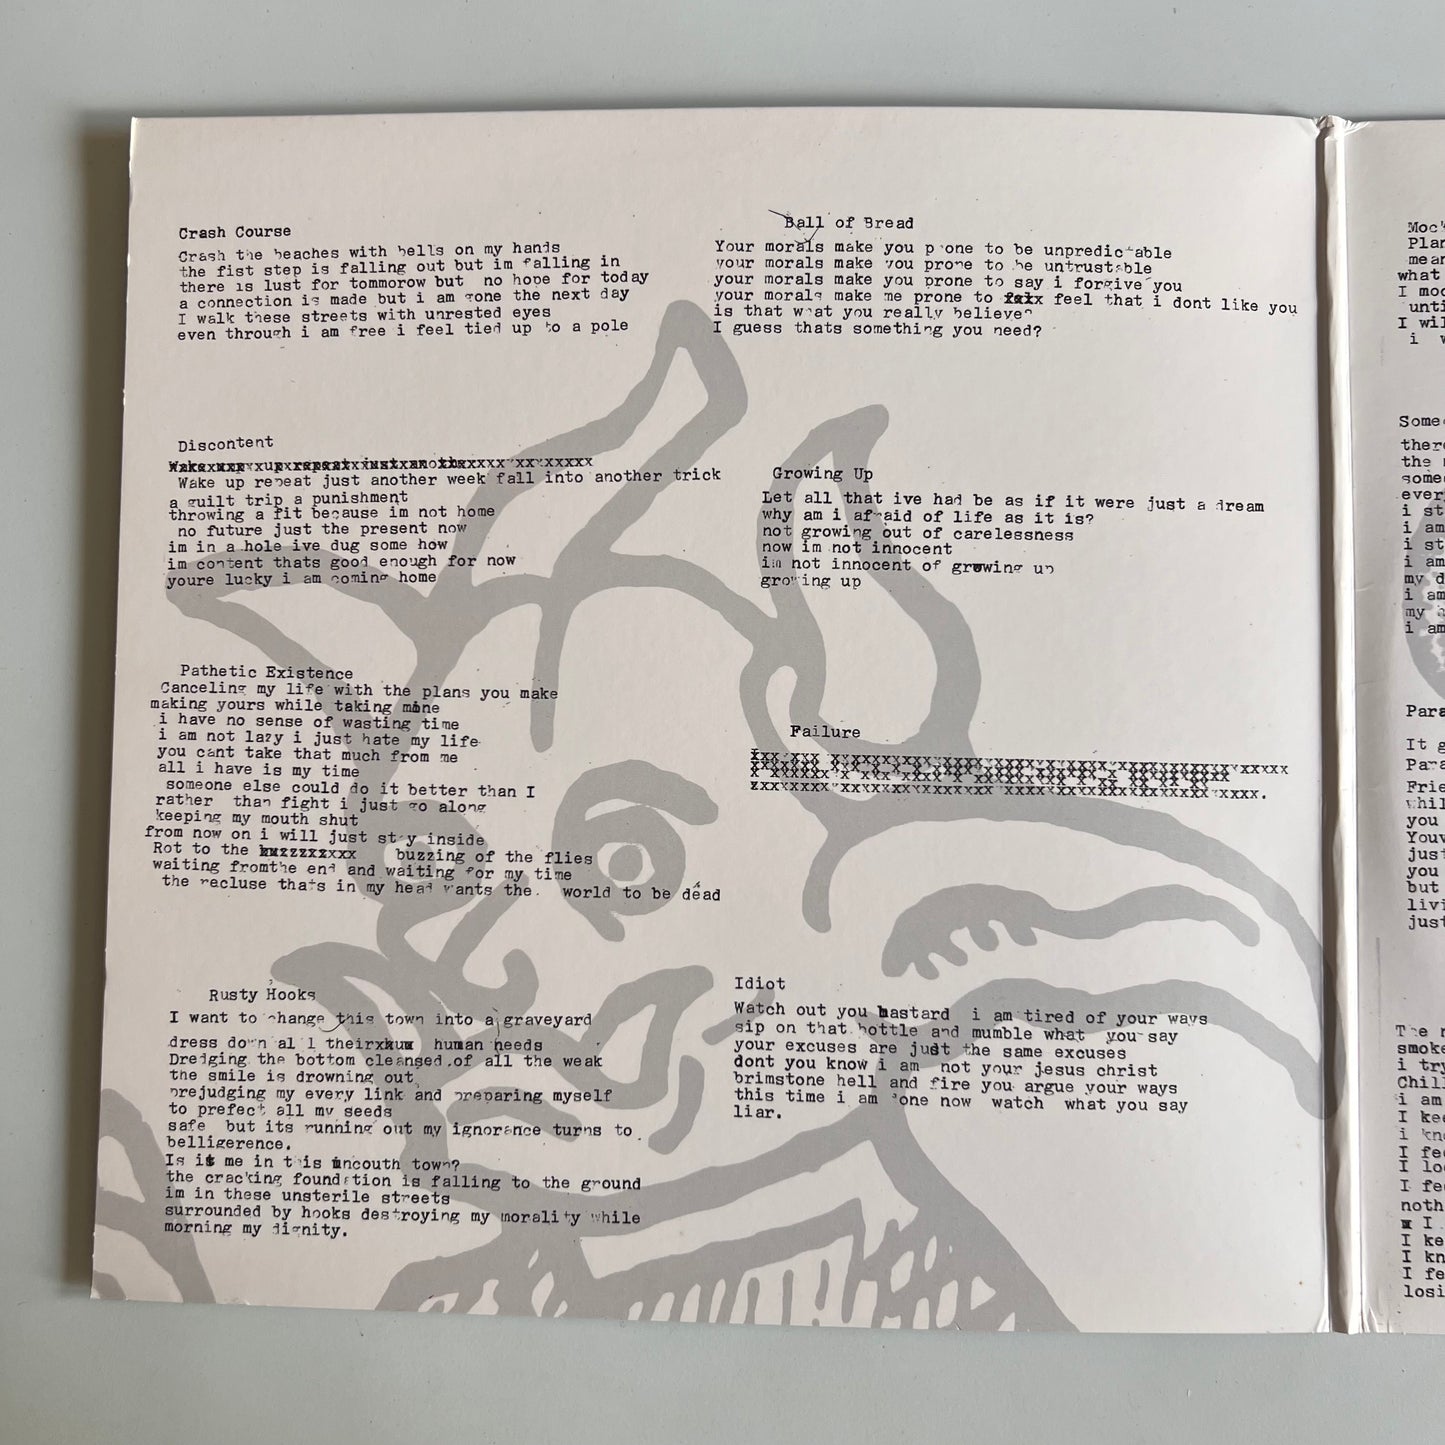 Crash Course
Crash the beaches with bells on my hands
the fist step is falling out but im falling in
there is lust for tommorow but no hope for today
a connection is made but i am gone the next day
I walk these streets with unrested eyes
even through i am free i feel tied up to a pole
Discontent
Wake up repeat just another week fall into another trick
a guilt trip a punishment
throwing a fit because im not home
no future just the present now
im in a hole ive dug some how
im content thats good enough for now
youre lucky i am coming home
Pathetic Existence
Canceling my life with the plans you make
making yours while taking mine
i have no sense of wasting time
i am not lazy i just hate my life
you cant take that much from me
all i have is my time
someone else could do it better than I
rather than fight i just go along
keeping my mouth shut
from now on i will just stay inside
Rot to the buzzing of the flies
waiting fromthe end and waiting for my time
the recluse thats in my head wants the. world to be dead
Rusty Hooks
I want to change this town into a graveyard
dress down al l their human needs
Dredging the bottom cleansed.of all the weak
the smile is drowning out
prejudging my every link and preparing myself
to prefect all my seeds
safe but its running out my ignorance turns to
belligerence.
Is it me in this uncouth town?
the cracking foundation is falling to the ground
im in these unsterile streets
surrounded by hooks destroying my morality while
morning my dignity.
Ball of Bread
Your morals make you prone to be unpredictable
your morals make you prone to be untrustable
your morals make you prone to say i forgive you
your morals make me prone to feel that i dont like you
is that what you really believe
I guess thats something you need?
Growing Up
Let all that ive had be as if it were just a dream
why am i afraid of life as it is?
not growing out of carelessness
now im not innocent
im not innocent of growing up
growing up
Failure
Idiot
Watch out you bastard i am tired of your ways
sip on that bottle and mumble what you say
your excuses are just the same excuses
dont you know i am not your jesus christ
brimstone hell and fire you argue your ways
this time i am gone now watch what you say
liar.
what
I moc
I wil
i
the
i st
i am
i st
i am
i am
i am
It g
you
you
but
just
smoke
i try
i am
I
I
I
I